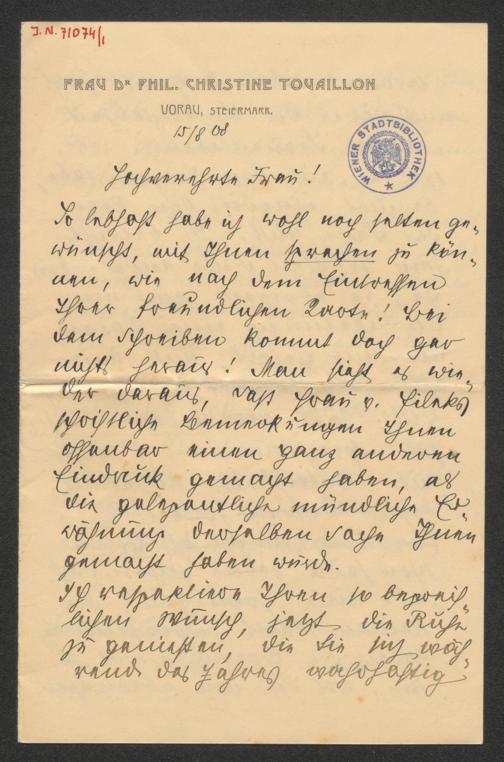 J.N. 71074/1
FRAU DR PHIL. CHRISTINE TOUAILLON
VORAU, STEIERMARK.
15/8 08
WIENER STADTBIBLIOTHEK
Hochverehrte Frau!
So lebhaft habe ich wohl noch selten ge-
wünscht, mit Ihnen sprechen zu kön-
nen, wie nach dem Eintreffen
Ihrer freundlichen Karte! Bei
dem Schreiben kommt doch gar
nichts heraus! Man sieht es wie-
der daraus, daß Frau v. Fileks
schriftliche Bemerkungen Ihnen
offenbar einen ganz anderen
Eindruck gemacht haben, als
die gelegentliche mündliche Er-
wähnung derselben Sache Ihnen
gemacht haben würde.
Ich respektiere Ihren so begreif-
lichen Wunsch, jetzt die Ruhe
zu genießen, die Sie sich wäh-
rend des Jahres wahrhaftig